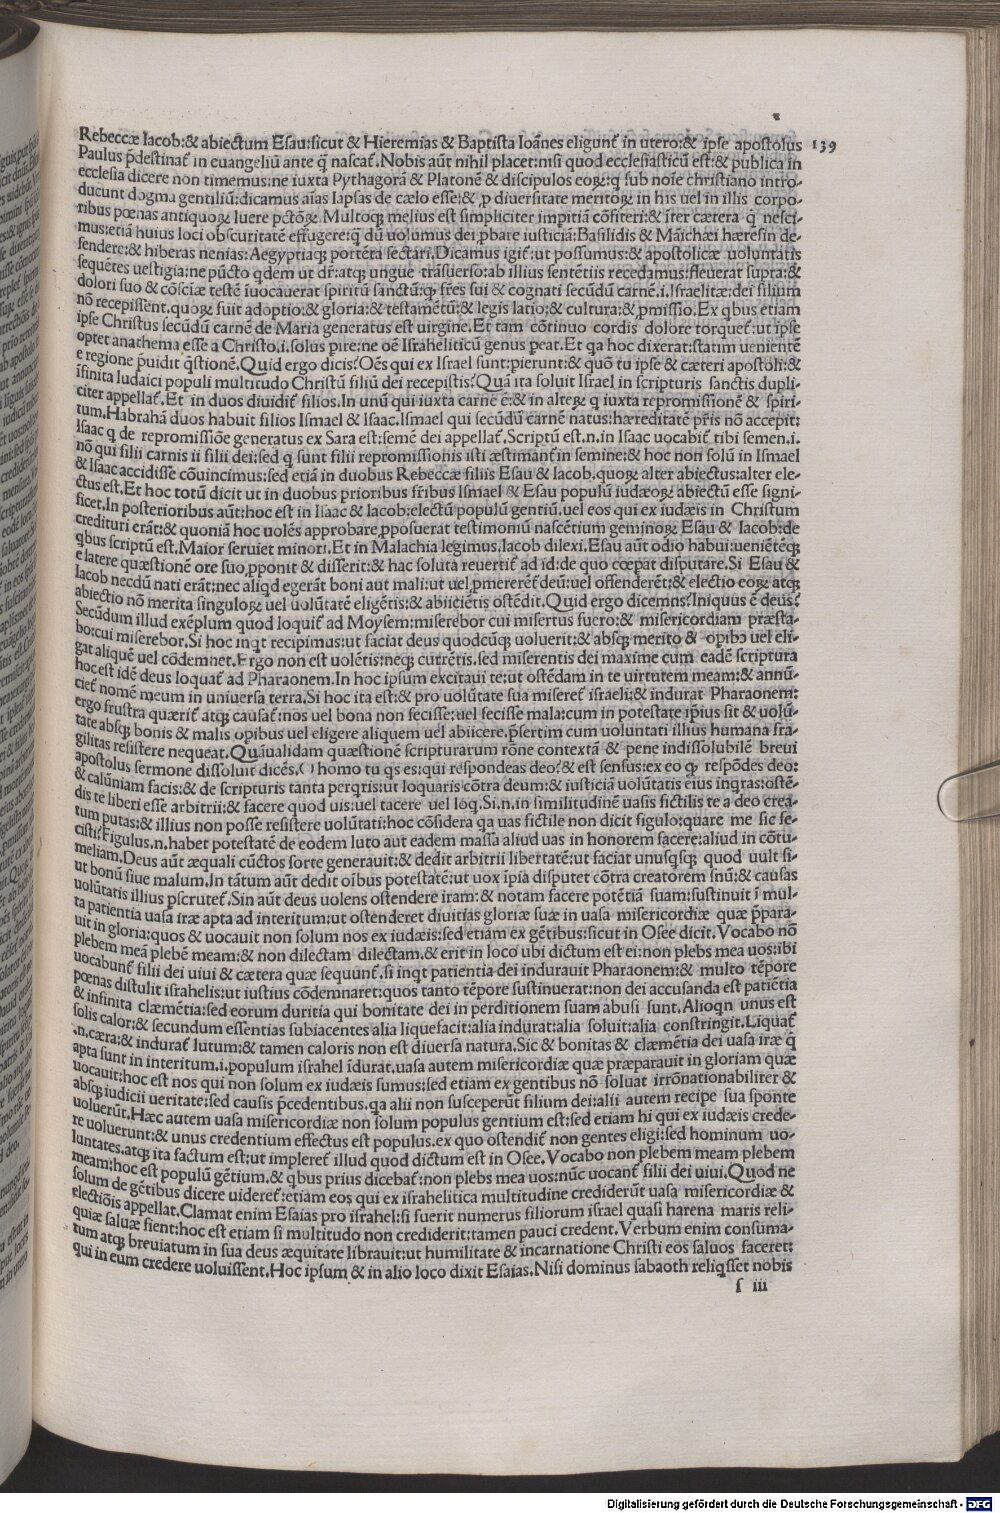 Rebeccæ Iacob:& abiectum Esau:sicut & Hieremias & Baptista Ioānes eligunt᷑ in utero:& ipse apostolus
139
Paulus p̄destinat᷑ in euangeliū ante q̄ nascat᷑.Nobis aūt nihil placet:nisi quod ecclesiasticū est:& publica in
ecclesia dicere non timemus:ne iuxta Pythagorā & Platonē & discipulos eoꝝ:q̇ sub noīe christiano intro-
ducunt dogma gentiliū:dicamus aīas lapsas de cælo esse:& ꝓ diuersitate meritoꝝ in his uel in illis corpo-
ribus pœnas antiquoꝝ luere pctōꝝ.Multoqꝫ melius est simpliciter impitiā cōfiteri:& īter cætera q̄ nesci-
mus:etiā huius loci obscuritatē effugere:q̄ dū uolumus dei ꝓbare iusticiā:Basilidis & Mānichæi hæresin de-
fendere:& hiberas nenias:Aegyptiaqꝫ portēta sectari.Dicamus igit᷑:ut possumus:& apostolicæ uoluntatis
sequētes uestigia:ne pūcto qdem ut dr̄:atqꝫ ungue trāsuerso:ab illius sentētiis recedamus:fleuerat supra:&
dolori suo & cōsciæ testē īuocauerat spiritū sanctū:qꝙ fr̄es sui & cognati secūdū carnē.i.Israelitæ:dei filium
nō recepissent.quoꝝ fuit adoptio:& gloria:& testamētū:& legis latio:& cultura:& ꝓmissio.Ex qbus etiam
ipse Christus secūdū carnē de Maria generatus est uirgine.Et tam cōtinuo cordis dolore torquet᷑:ut ipse
optet anathema esse a Christo.i.solus pire:ne oē Israheliticū genus peat.Et qa hoc dixerat:statim uenientē
e regione p̄uidit q̄stionē.Quid ergo dicis?Oēs qui ex Israel sunt:pierunt:& quō tu ipse & cæteri apostoli:&
īfinita Iudaici populi multitudo Christū filiū dei recepistis?Quā ita soluit Israel in scripturis sanctis dupli-
citer appellat᷑.Et in duos diuidit᷑ filios.In unū qui iuxta carnē ē:& in alteꝝ q iuxta repromissionē & spiri-
tum.Habrahā duos habuit filios Ismael & Isaac.Ismael qui secūdū carnē natus:hæreditatē pr̄is nō accepit:
Isaac q̇ de repromissiōe generatus ex Sara est:semē dei appellat᷑.Scriptū est.n.in Isaac uocabit᷑ tibi semen.i.
nō qui filii carnis ii filii dei:sed q̇ sunt filii repromissionis isti æstimant᷑ in semine:& hoc non solū in Ismael
& Isaac accidisse cōuincimus:sed etiā in duobus Rebeccæ filiis Esau & Iacob.quoꝝ alter abiectus:alter ele-
ctus est.Et hoc totū dicit ut in duobus prioribus fr̄ibus Ismael & Esau populū iudæoꝝ abiectū esse signi-
ficet.In posterioribus aūt:hoc est in Isaac & Iacob:electū populū gentiū.uel eos qui ex iudæis in Christum
credituri erāt:& quoniā hoc uolēs approbare,pposuerat testimoniū nascētium geminoꝝ Esau & Iacob:de
qbus scriptū est.Maior seruiet minori.Et in Malachia legimus.Iacob dilexi.Esau aūt odio habui:ueniētēqꝫ
e latere quæstionē ore suo,pponit & disserit:& hac soluta reuertit᷑ ad id:de quo cœpat disputare.Si Esau &
Iacob necdū nati erāt:nec aliqd egerāt boni aut mali:ut uel ꝓmererēt᷑ deū:uel offenderēt:& electio eoꝝ atqꝫ
abiectio nō merita singuloꝝ uel uolūtatē eligētis:& abiiciētis ostēdit.Quid ergo dicemus?Iniquus ē deus?
Secūdum illud exēplum quod loquit᷑ ad Moysem:miserebor cui misertus fuero:& misericordiam præsta-
bo:cui miserebor.Si hoc inqt recipimus:ut faciat deus quodcūqꝫ uoluerit:& absqꝫ merito & opibꝫ uel eli-
gat aliquē uel cōdemnet.Ergo non est uolētis:neqꝫ currētis.sed miserentis dei maxime cum eadē scriptura
hoc est idē deus loquat᷑ ad Pharaonem.In hoc ipsum excitaui te:ut ostēdam in te uirtutem meam:& annū-
ciet᷑ nomē meum in uniuersa terra.Si hoc ita est:& pro uolūtate sua miseret᷑ israeli:& indurat Pharaonem:
ergo frustra quærit᷑ atqꝫ causat᷑:nos uel bona non fecisse:uel fecisse mala:cum in potestate ip̄ius sit & uolū-
tate absqꝫ bonis & malis opibus uel eligere aliquem uel abiicere.p̄sertim cum uoluntati illius humana frā-
gilitas resistere nequeat.Quāualidam quæstionē scripturarum rōne contextā & pene indissolubilē breui
apostolus sermone dissoluit dicēs.O homo tu qs es:qui respondeas deo?& est sensus:ex eo qꝙ respōdes deo:
& calūniam facis:& de scripturis tanta perqris:ut loquaris cōtra deum:& iusticiā uolūtatis eius inqras:ostē-
dis te liberi esse arbitrii:& facere quod uis:uel tacere uel loq.Si.n.in similitudinē uasis fictilis te a deo crea-
tum putas:& illius non posse resistere uolūtati:hoc cōsidera qa uas fictile non dicit figulo:quare me sic fe-
cisti?Figulus.n.habet potestatē de eodem luto aut eadem massa aliud uas in honorem facere:aliud in cōtu-
meliam.Deus aūt æquali cūctos sorte generauit:& dedit arbitrii libertatē:ut faciat unusqsqꝫ quod uult si-
ue bonū siue malum.In tātum aūt dedit oībus potestatē:ut uox īpia disputet cōtra creatorem suū:& causas
uolūtatis illius pscrutet᷑.Sin aūt deus uolens ostendere iram:& notam facere potētiā suam:sustinuit ī mul-
ta patientia uasa iræ apta ad interitum:ut ostenderet diuitias gloriæ suæ in uasa misericordiæ quæ p̄para-
uit in gloria:quos & uocauit non solum nos ex iudæis:sed etiam ex gētibus:sicut in Osee dicit.Vocabo nō
plebem meā plebē meam:& non dilectam dilectam.& erit in loco ubi dictum est ei:non plebs mea uos:ibi
uocabunt᷑ filii dei uiui & cætera quæ sequunt᷑.si inqt patientia dei indurauit Pharaonem:& multo tēpore
pœnas distulit israhelis:ut iustius cōdemnaret:quos tanto tēpore sustinuerat:non dei accusanda est patiētia
& infinita clæmētia:sed eorum duritia qui bonitate dei in perditionem suam abusi sunt.Alioqn unus est
solis calor:& secundum essentias subiacentes alia liquefacit:alia indurat:alia soluit:alia constringit.Liquat᷑
.n.cæra:& indurat᷑ lutum:& tamen caloris non est diuersa natura.Sic & bonitas & clæmētia dei uasa iræ q̄
apta sunt in interitum.i.populum israhel īdurat.uasa autem misericordiæ quæ præparauit in gloriam quæ
uocauit:hoc est nos qui non solum ex iudæis sumus:sed etiam ex gentibus nō soluat irrōnationabiliter &
absqꝫ iudicii ueritate:sed causis p̄cedentibus.qa alii non susceperūt filium dei:alii autem recipe sua sponte
uoluerūt.Hæc autem uasa misericordiæ non solum populus gentium est:sed etiam hi qui ex iudæis crede-
re uoluerunt:& unus credentium effectus est populus.ex quo ostendit᷑ non gentes eligi:sed hominum uo-
luntates.atqꝫ ita factum est:ut impleret᷑ illud quod dictum est in Osee.Vocabo non plebem meam plebem
meam:hoc est populū gētium.& qbus prius dicebat᷑:non plebs mea uos:nūc uocant᷑ filii dei uiui.Quod ne
solum de gētibus dicere uideret᷑:etiam eos qui ex israhelitica multitudine crediderūt uasa misericordiæ &
electiōis appellat.Clamat enim Esaias pro israhel:si fuerit numerus filiorum israel quasi harena maris reli-
quiæ saluæ fient:hoc est etiam si multitudo non crediderit:tamen pauci credent.Verbum enim consuma-
tum atqꝫ breuiatum in sua deus æquitate librauit:ut humilitate & incarnatione Christi eos saluos faceret:
qui in eum credere uoluissent.Hoc ipsum & in alio loco dixit Esaias.Nisi dominus sabaoth reliqsset nobis
s iii
Digitalisierung gefördert durch die Deutsche Forschungsgemeinschaft - DFG